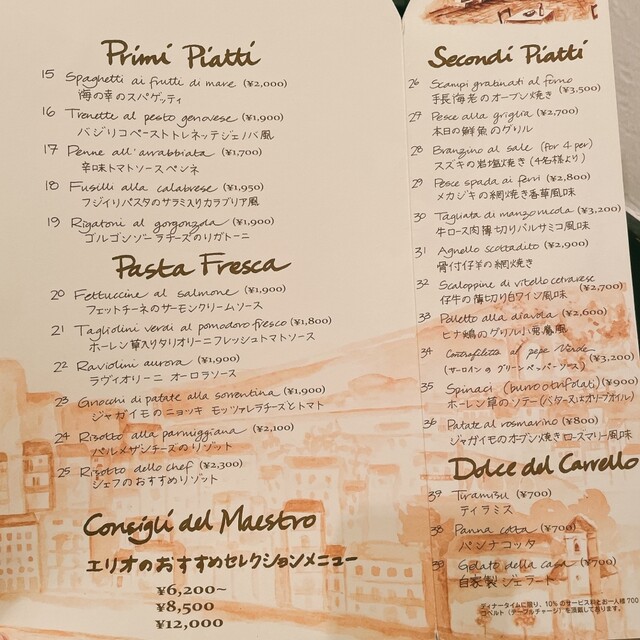 Primi Piatti
15 Spaghetti ai frutti di mare (¥2,000)
海の幸のスパゲッティ
16 Trenette al pesto genovese (¥1,900)
バジリコペーストトレネッテジェノバ風
17 Penne all'arrabbiata (¥1,700)
辛味トマトソースペンネ
18 Fusilli alla calabrese (¥1,950)
フジイリパスタのサラミ入りカラブリア風
19 Rigatoni al gorgonzola (¥1,900)
ゴルゴンゾーラチーズのリガトーニ
Pasta Fresca
20 Fettuccine al salmone (¥1,900)
フェットチーネのサーモンクリームソース
21 Tagliolini verdi al pomodoro fresco (¥1,800)
ホーレン草入りタリオリーニフレッシュトマトソース
22 Raviolini aurora (¥1,900)
ラヴィオリーニ オーロラソース
23 Gnocchi di patate alla sorrentina (¥1,900)
ジャガイモのニョッキ モッツァレラチーズとトマト
24 Risotto alla parmiggiana (¥2,100)
パルメザンチーズのリゾット
25 Risotto dello chef (¥2,300)
シェフのおすすめリゾット
Consigli del Maestro
エリオのおすすめセレクションメニュー
¥6,200~
¥8,500
¥12,000
Secondi Piatti
26 Scampi gratinati al forno
手長海老のオーブン焼き (¥3,500)
27 Pesce alla griglia (¥2,700)
本日の鮮魚のグリル
28 Branzino al sale (for 4 per)
スズキの岩塩焼き (4名様より)
29 Pesce spada ai ferri (¥2,800)
メカジキの網焼き香草風味
30 Tagliata di manzo rucola (¥3,200)
牛ロース肉薄切りバルサミコ風味
31 Agnello scottadito (¥2,900)
骨付仔羊の網焼き
32 Scaloppine di vitello cetrarese
仔牛の薄切り白ワイン風味 (¥2,700)
33 Polletto alla diavola (¥2,600)
ヒナ鶏のグリル小悪魔風
34 Controfiletto al pepe Verde
(サーロインのグリーンペッパーソース) (¥3,200)
35 Spinaci (burro o trifolati) (¥900)
ホーレン草のソテー (バター又はオリーブオイル)
36 Patate al rosmarino (¥800)
ジャガイモのオーブン焼きローズマリー風味
Dolce del Carrello
39 Tiramisu (¥700)
ティラミス
38 Panna cotta (¥700)
パンナコッタ
39 Gelato della casa (¥700)
自家製ジェラート
ディナータイムに限り、10%のサービス料とお一人様700
コペルト(テーブルチャージ)を頂戴しております。